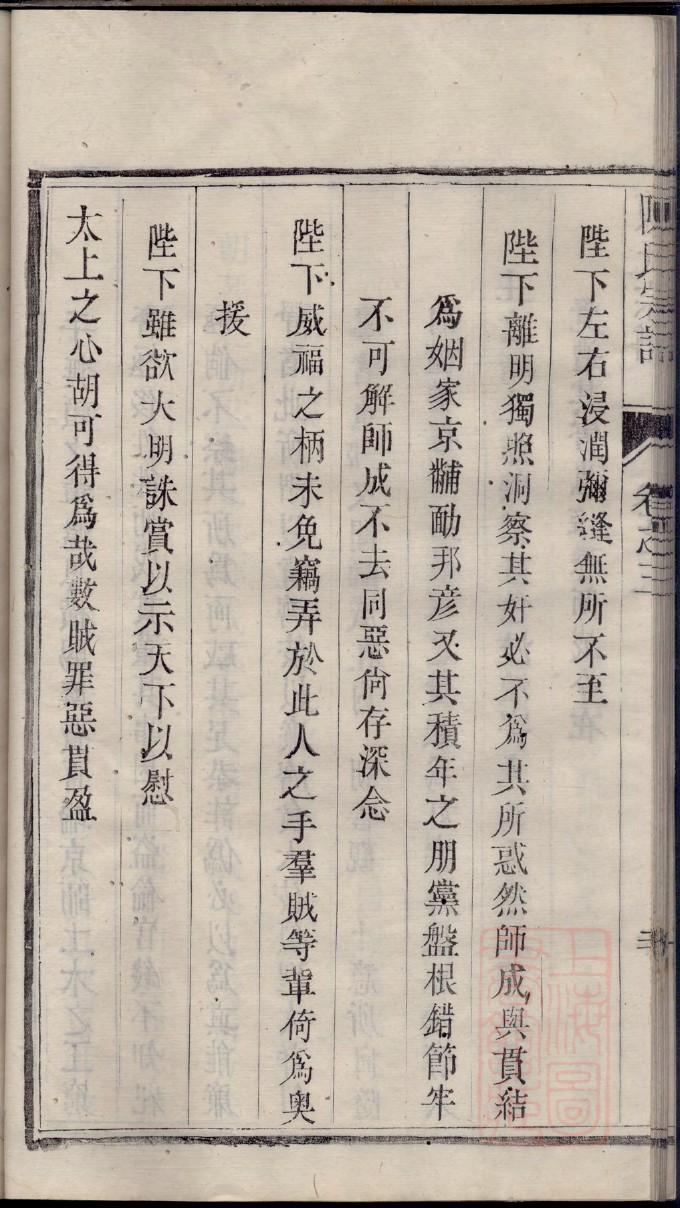 陛下左右浸潤彌縫無所不至
陛下離明獨照洞察其奸必不爲其所惑然師成與貫結
爲姻家京黼勔邦彥又其積年之朋黨盤根錯節牢
不可解師成不去同惡尙存深念
陛下威福之柄未免竊弄於此人之手羣賊等輩倚爲奥
援
陛下雖欲大明誅賞以示天下以慰
太上之心胡可得爲哉數賊罪惡貫盈
陳氏宗譜
卷之三
上海圖